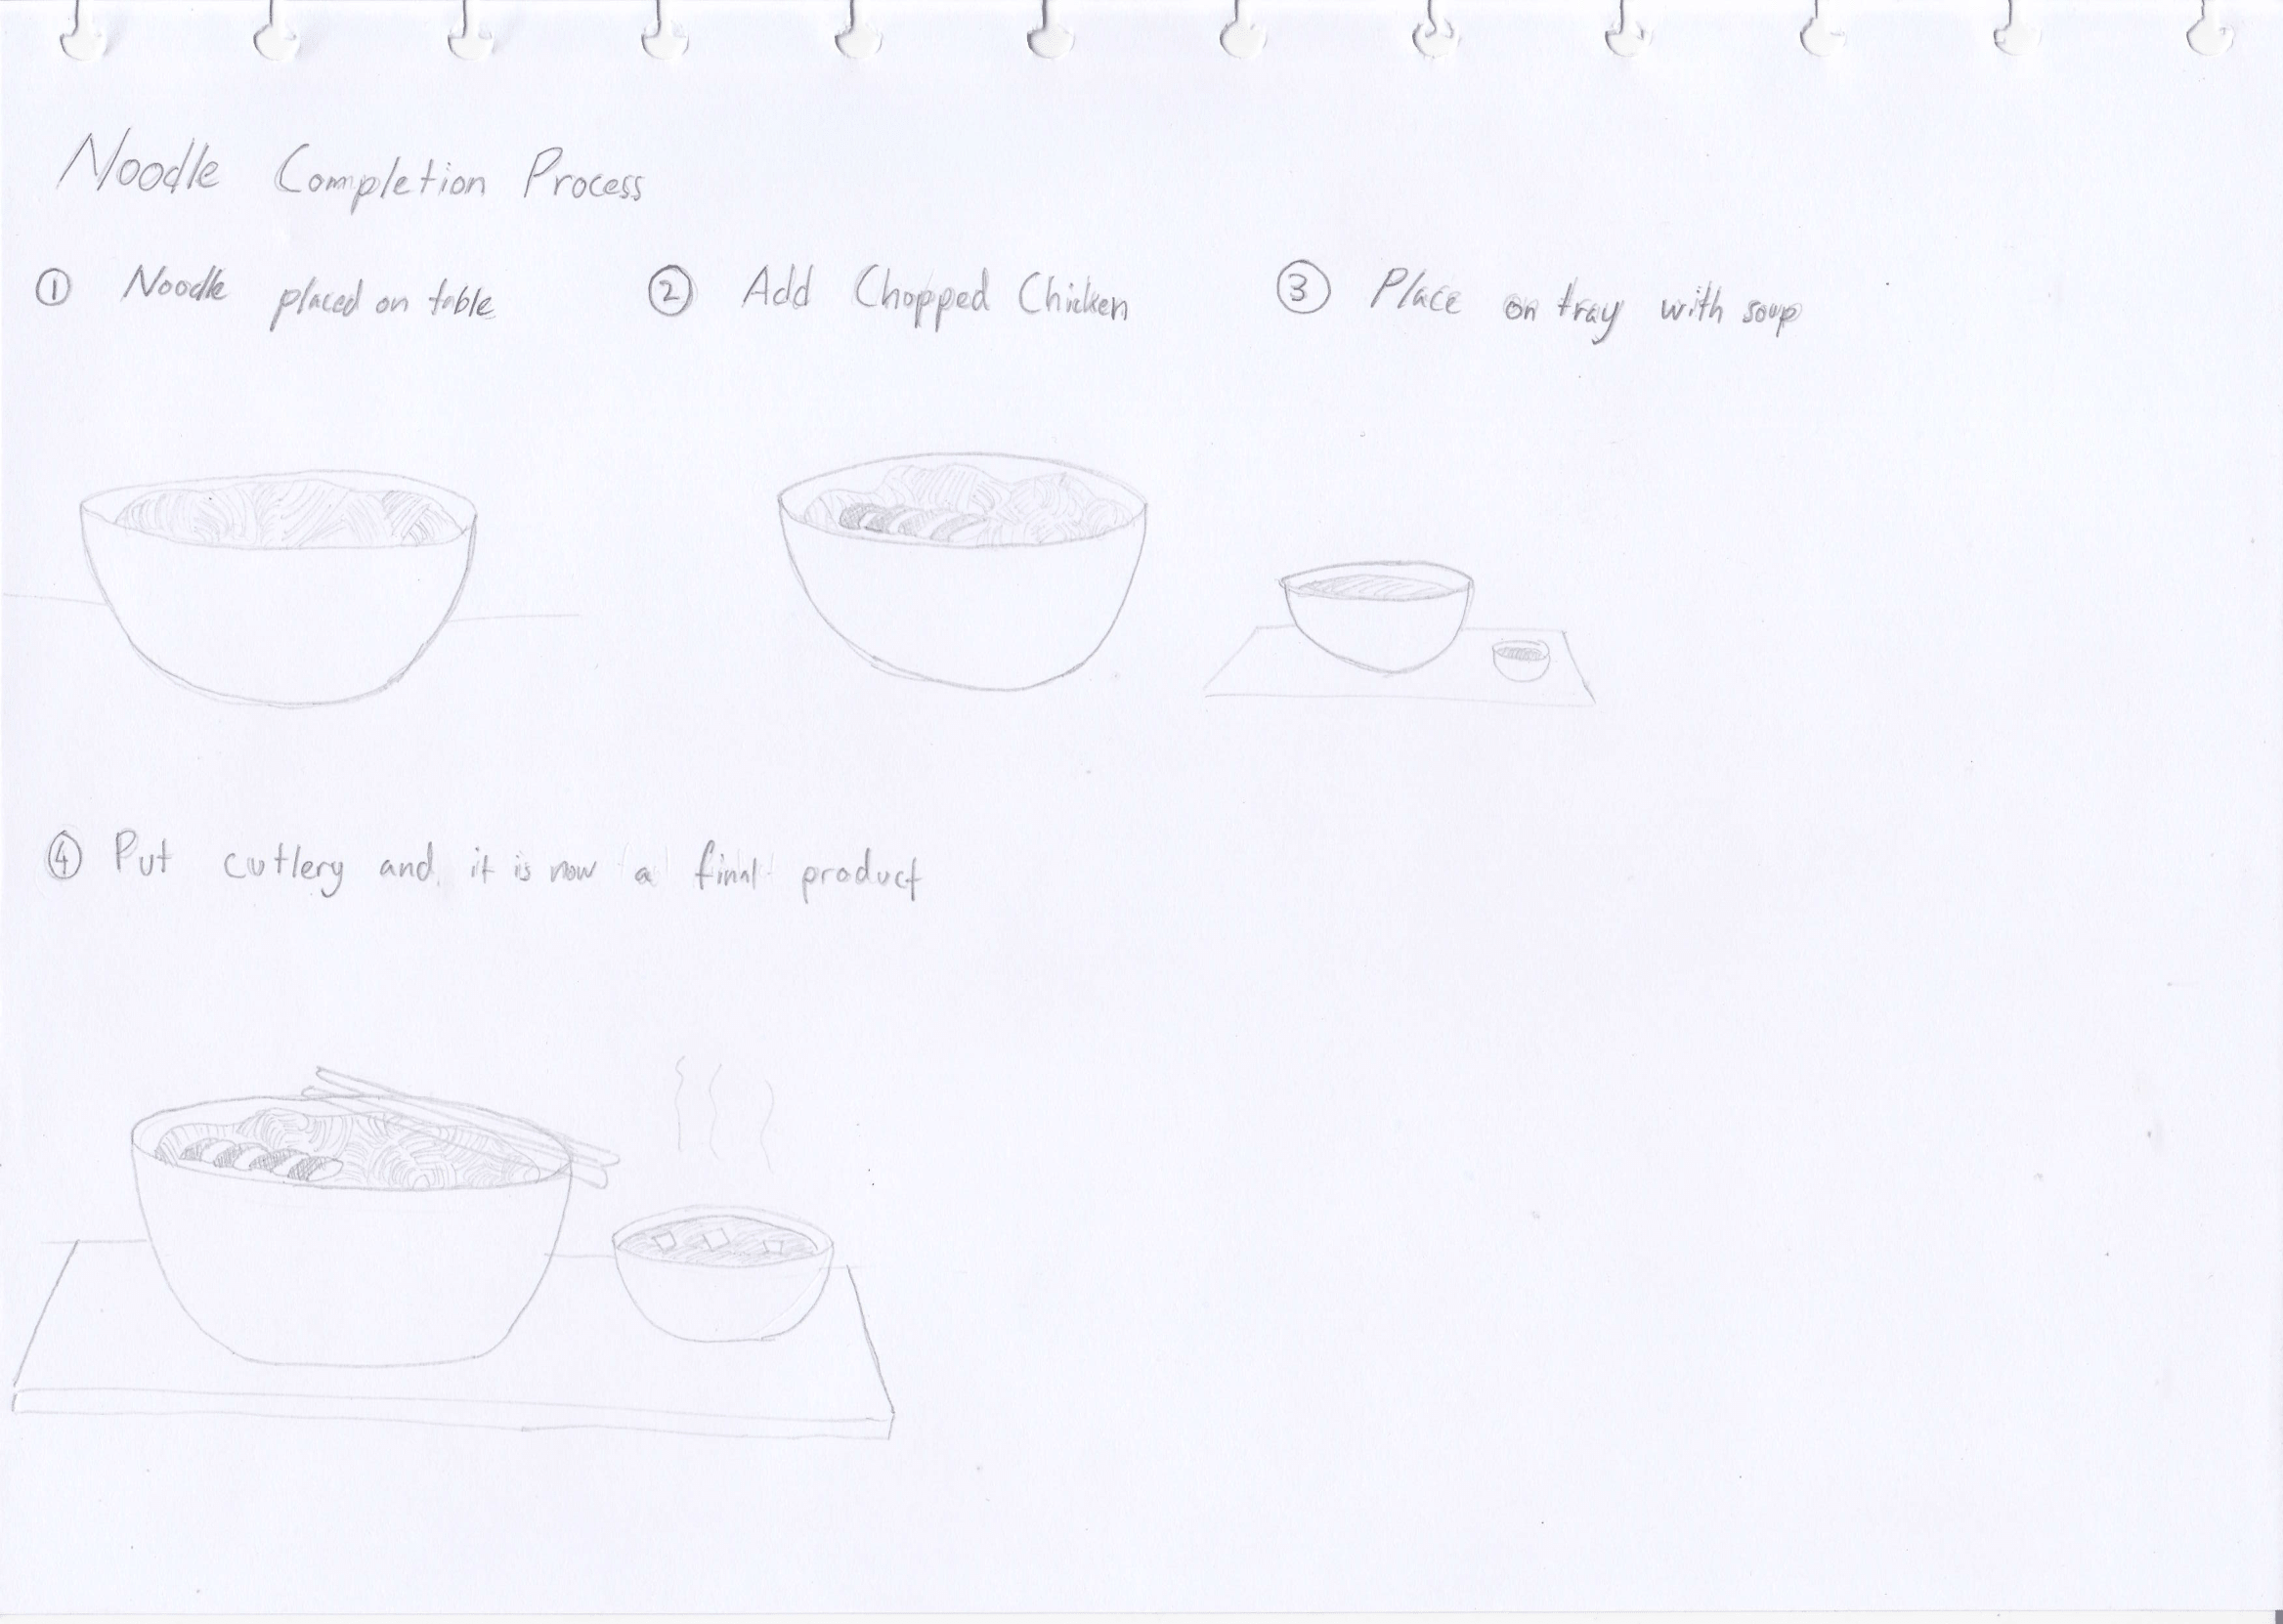 Noodle Completion Process
① Noodle placed on table
② Add Chopped Chicken
③ Place on tray with soup
④ Put cutlery and it is now a final product